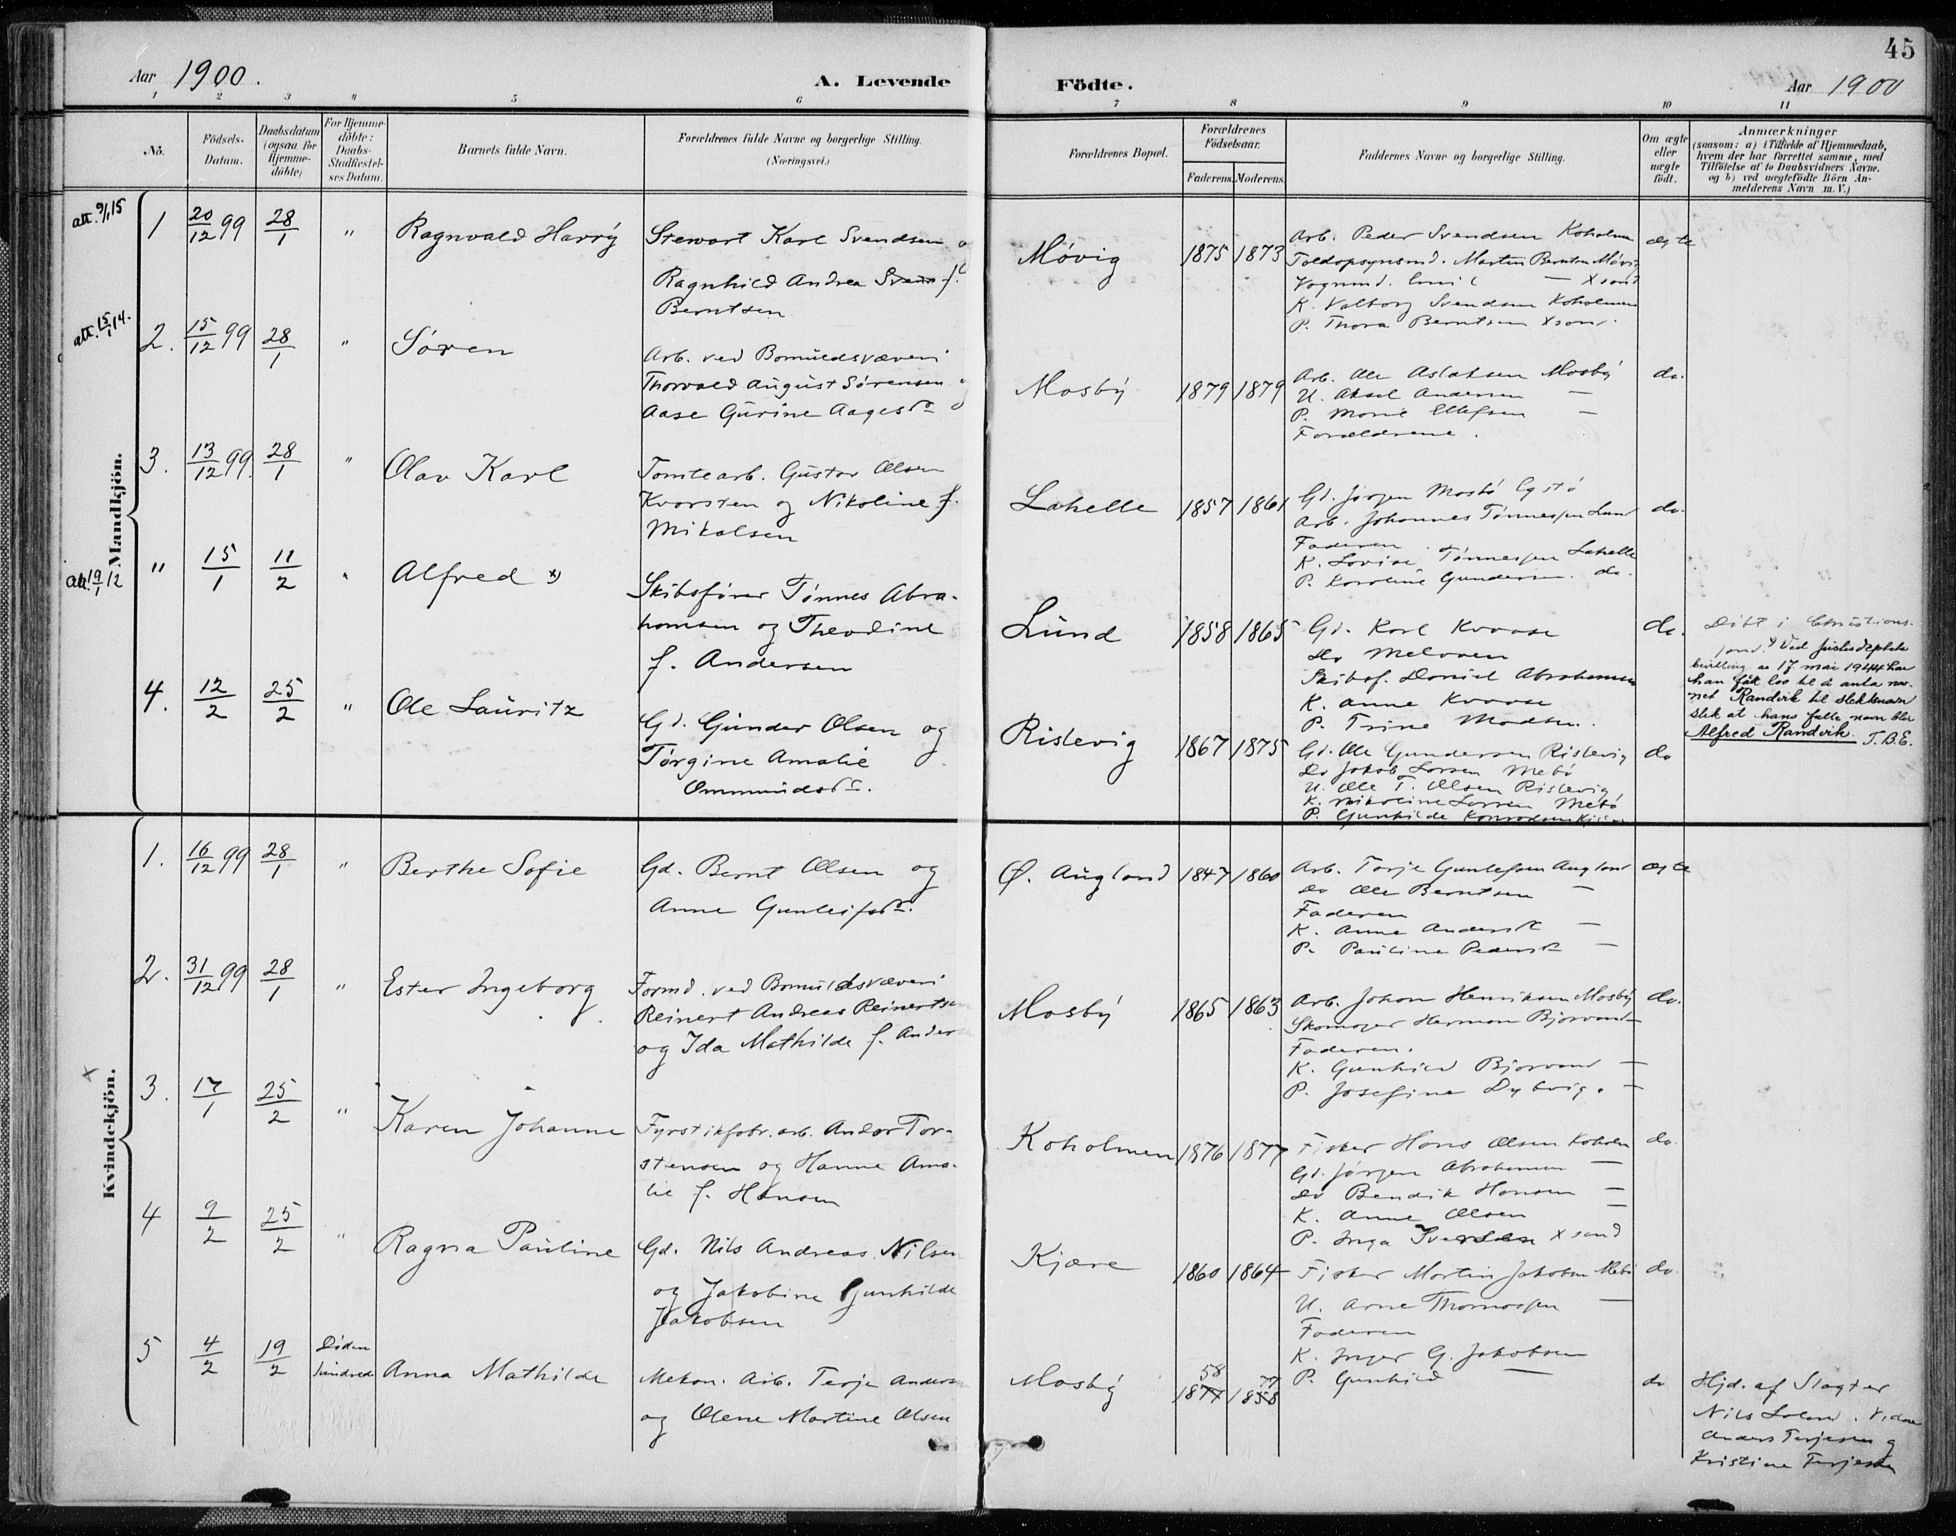 45
Aar 1900. A. Levende Födte. Aar 1900
1 2 3 4 5 6 7 8 9 10 11
No.
Födsels-Datum.
Daabsdatum (ogsaa for Hjemme-döbte)
For Hjemme-döbte: Daabs-Stadfæstelses Datum.
Barnets fulde Navn.
Forældrenes fulde Navne og borgerlige Stilling. (Næringsvei.)
Forældrenes Bopæl.
Forældrenes Födselsaar.
Faderens. Moderens.
Faddernes Navne og borgerlige Stilling.
Om ægte eller uægte födt.
Anmærkninger
(saasom: a) i Tilfælde af Hjemmedaab,
hvem der har forrettet samme, med
Tilföielse af to Daabsvidners Navne.
og b) ved uægtefödte Börn An-
melderens Navn m. V.)
Mandkjön.
att. 9/1 15
1 20/12 99 28/1 " Ragnvald Harry
Stewart Karl Svendsen og
Ragnhild Andrea f.
Berntsen
Møvig 1875 1873
Arb. Peder Svendsen Koholmen
Toldopsynsmd. Martin Berntsen Møvig
Vognmd. Emil — Xsand
K. Valborg Svendsen Koholmen
P. Thora Berntsen Xsand.
ægte
att. 15/1 14.
2. 15/12 99 28/1 " Søren
Arb. ved Bomuldsvæveri
Thorvald August Sørensen og
Aase Gurine Aagesdr
Mosby 1879 1879
Arb. Ole Aslaksen Mosby
U. Aksel Andersen —
P. Marie Ellefsen —
Forældrene.
do.
3. 13/12 99. 28/1 " Olav Karl
Tomtearb. Gustav Olsen
Kvarsten og Nikoline f.
Mikalsen
Lahelle 1857 1861
Gd. Jørgen Mosbø
Arb. Johannes Tønnessen Lund
Faderen.
K. Lovise Tønnessen Lahelle
P. Karoline Gundersen. do.
do.
att. 19/1 12
" 15/1 11/2 " Alfred x)
Skibsfører Tønnes Abra-
hamsen og Theodine
f. Andersen
Lund 1858 1865
Gd. Karl Kvaase
Do
Skibsf. Daniel Abrahamsen
K. Anne Kvaase
P. Trine Madsen.
do.
Døbt i Christians-
sand. x) Ved Justisdeptets
bevilling av 17. mai 1944 har
han fått lov til å anta nav-
net Randvik til slektsnavn
slik at hans fulle navn blir
Alfred Randvik. T.B.E.
4. 12/2 25/2 " Ole Lauritz
Gd. Gunder Olsen og
Tørgine Amalie
Ommundsdr.
Rislevig 1867 1875
Gd. Ole Gundersen Rislevig
Do Jakob Larsen Mebø
U. Ole T. Olsen Rislevig
K. Nikoline Larsen Mebø
P. Gunhilde Konradsen
do
Kvindekjön.
1. 16/12 99 28/1 " Berthe Sofie
Gd. Bernt Olsen og
Anne Gunleifsdr.
Ø. Augland 1847 1860
Arb. Terje Gunleifsen Augland
Do Ole Berntsen —
Faderen
K. Anne Andersdt —
P. Pauline Pedersdt —
ægte
2. 31/12 99 28/1 " Ester Ingeborg
Formd. ved Bomuldsvæveri
Reinert Andreas Reinertsen
og Ida Mathilde f. Anders
Mosby 1865 1863
Arb. Johan Henriksen Mosby
Skomager Herman Bjorvand —
Faderen.
K. Gunhild Bjorvand —
P. Josefine Dybvig. —
do.
x
3. 17/1 25/2 " Karen Johanne
Fyrstikfabr.arb. Andor Tor-
stensen og Hanne Ama-
lie f. Hansen
Koholmen 1876 1877
Fisker Hans Olsen Koholm
Gd. Jørgen Abrahamsen —
Do Bendik Hansen —
K. Anne Olsen —
P. Inga Iversen Xsand
do.
4 9/2 25/2 " Ragna Pauline
Gd. Nils Andreas Nilsen
og Jakobine Gunhilde
Jakobsen
Kjære 1860 1864
Fisker Martin Jakobsen Mebø
U. Arne Thomassen —
Faderen
K. Inger G. Jakobsen
P. Gunhild —
do.
5 4/2 19/2 Døden Anna Mathilde
Mekan. Arb. Terje Anders
og Olene Martine Olsen
Mosby 58 1877 77 1858
do
Hjd. af Slagter
Nils . Vidner
Anders Terjesen og
Kristine Terjesen